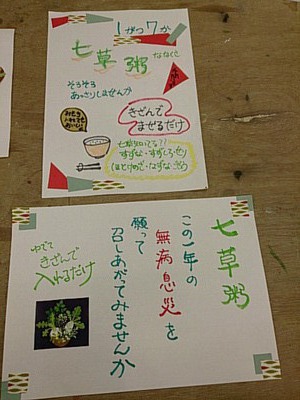 1がつ7か
七草粥
ななくさ
そろそろ
あっさりしませんか
きざんで
まぜるだけ
七草知ってる??
すずな・すずしろ・せり
ほとけのざ・はこべ・ごぎょう
七草粥
この一年の
無病息災を
願って
召しあがてみませんか
ゆでて
きざんで
入れるだけ